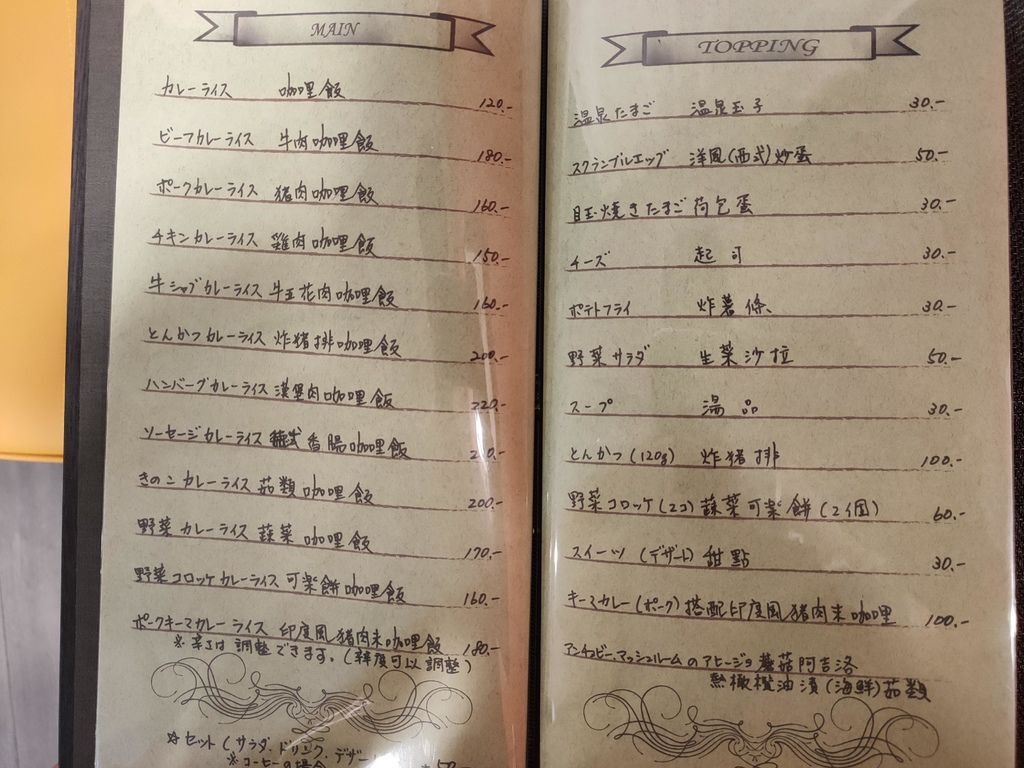 MAIN
カレーライス 咖哩飯 120.-
ビーフカレーライス 牛肉咖哩飯 180.-
ポークカレーライス 猪肉咖哩飯 160.-
チキンカレーライス 雞肉咖哩飯 150.-
牛シャブカレーライス 牛五花肉咖哩飯 160.-
とんかつカレーライス 炸猪排咖哩飯 200.-
ハンバーグカレーライス 漢堡肉咖哩飯 220.-
ソーセージカレーライス 香腸咖哩飯
きのこカレーライス 茹類咖哩飯 200.-
野菜カレーライス 蔬菜咖哩飯 170.-
野菜コロッケカレーライス 可楽餅咖哩飯 160.-
ポークキーマカレーライス 印度風猪肉末咖哩飯 180.-
※辛さは調整できます。(辣度可以調整)
☆セット(サラダ、ドリンク、デザー
※コーヒーの場合
TOPPING
温泉たまご 温泉玉子 30.-
スクランブルエッグ 洋風(西式)炒蛋 50.-
目玉焼きたまご 荷包蛋 30.-
チーズ 起司 30.-
ポテトフライ 炸薯條 30.-
野菜サラダ 生菜沙拉 50.-
スープ 湯品 30.-
とんかつ(120g) 炸猪排 100.-
野菜コロッケ(2コ) 蔬菜可楽餅(2個) 60.-
スイーツ(デザート) 甜點 30.-
キーマカレー(ポーク) 搭配印度風猪肉末咖哩 100.-
アンチョビ、マッシュルームのアヒージョ 蘑菇阿吉洛
橄欖油漬(海鮮)茹類